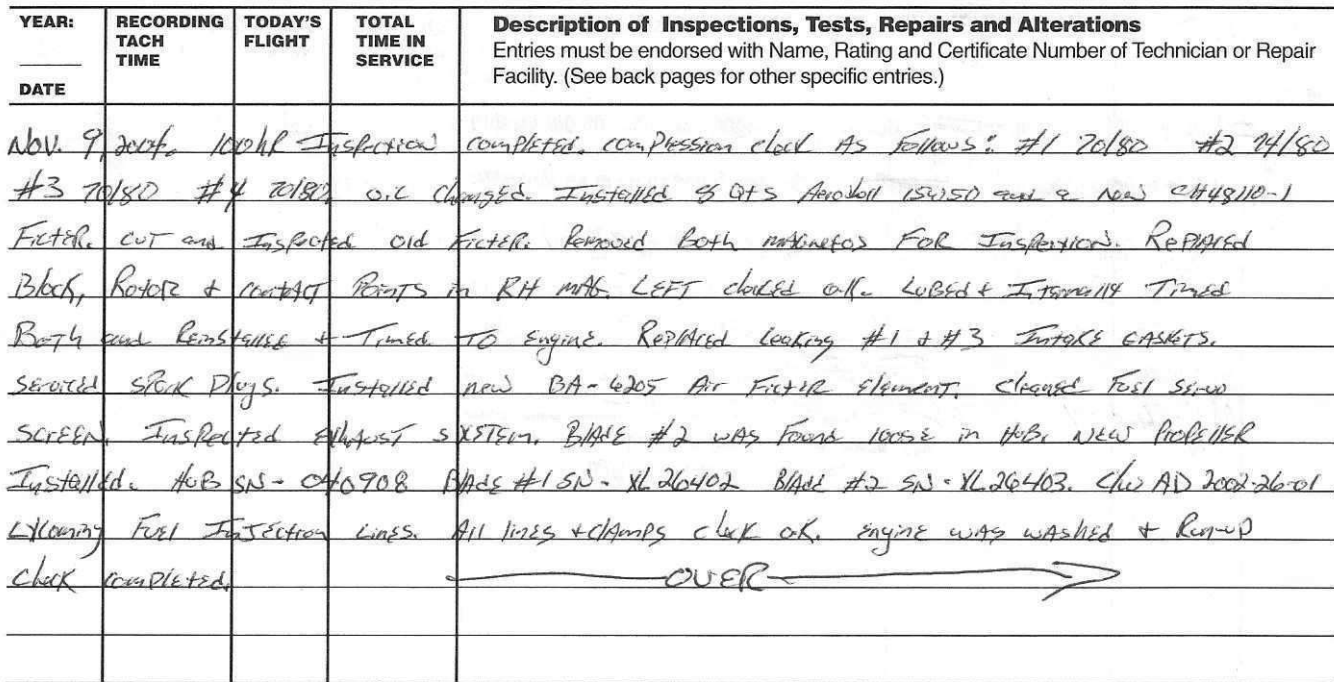 YEAR:
DATE
RECORDING TACH TIME
TODAY'S FLIGHT
TOTAL TIME IN SERVICE
Description of Inspections, Tests, Repairs and Alterations
Entries must be endorsed with Name, Rating and Certificate Number of Technician or Repair
Facility. (See back pages for other specific entries.)
Nov. 9, 2004. 100hr Inspection completed. compression check As Follows: #1 70/80 #2 74/80
#3 70/80 #4 70/80. oil changed. Installed 8 Qts Aeroshell 15W50 and a New CH48110-1
Filter. cut and Inspected old Filter. Removed Both magnetos FOR Inspection. Replaced
Block, Rotor & contact Points in RH mag. LEFT checked ok. Lubed & Internally Timed
Both and Reinstalled & Timed TO Engine. Replaced Leaking #1 & #3 Intake Gaskets.
Serviced Spark Plugs. Installed new BA-6205 Air Filter Element. Cleaned Fuel Servo
SCREEN. Inspected Exhaust System. Blade #2 was Found loose in Hub. New Propeller
Installed. Hub SN- 040908 Blade #1 SN- XL26402 Blade #2 SN- XL26403. C/W AD 2002-26-01
Lycoming Fuel Injection Lines. All lines & clamps check ok. Engine was washed & Run-up
check completed. OVER